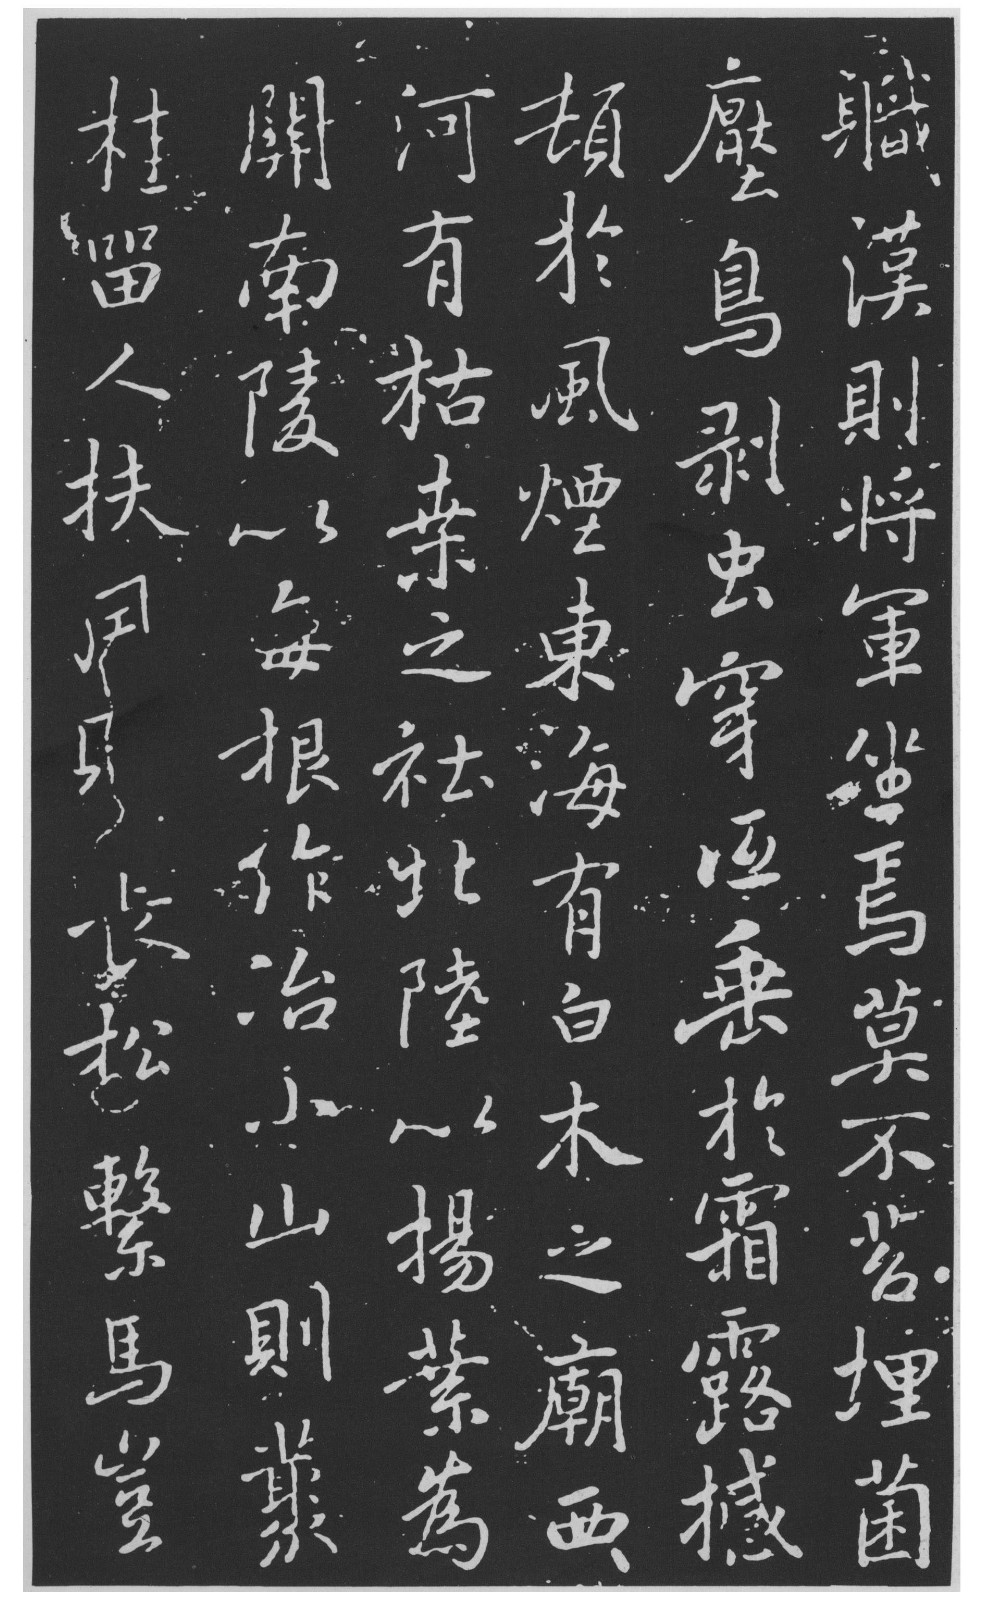 職漢則将軍坐焉莫不苔埋菌
壓鳥剥虫穿低垂於霜露撼
頓於風煙東海有白木之廟西
河有枯桒之社北陸以楊葉為
關南陵以每根作冶小山則叢
桂留人扶風則長松繫馬豈